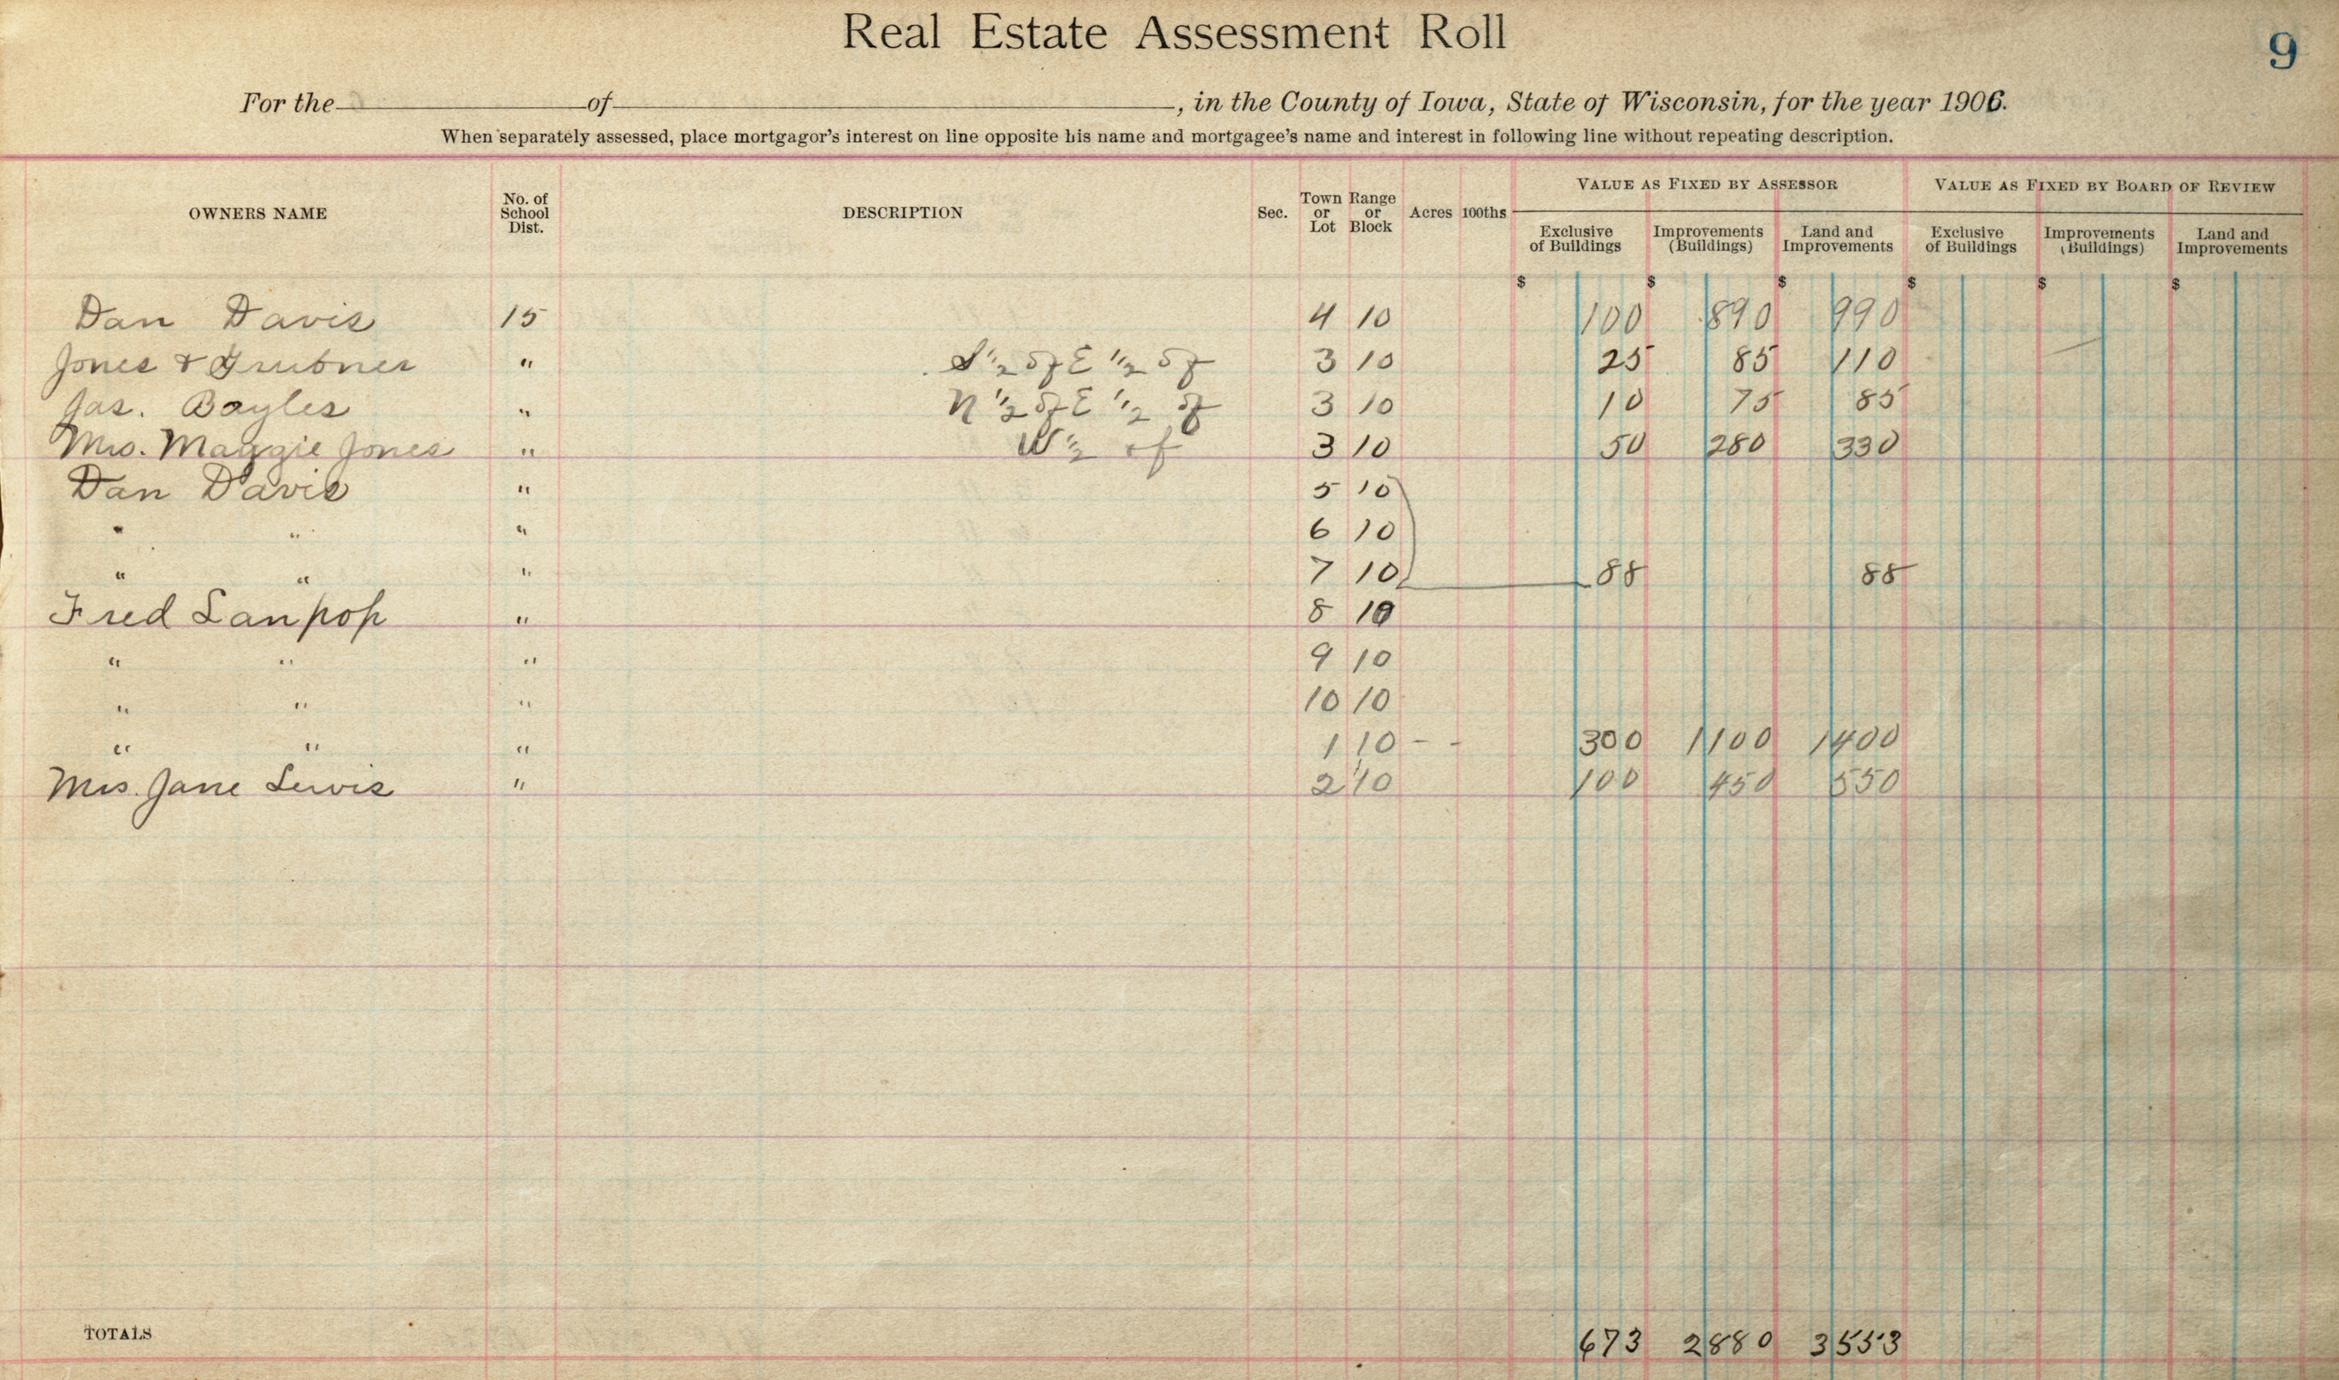 Real Estate Assessment Roll
9
For the of , in the County of Iowa, State of Wisconsin, for the year 1906.
When separately assessed, place mortgagor's interest on line opposite his name and mortgagee's name and interest in following line without repeating description.
OWNERS NAME No. of School Dist. DESCRIPTION Sec. Town or Lot Range or Block Acres 100ths VALUE AS FIXED BY ASSESSOR VALUE AS FIXED BY BOARD OF REVIEW
Exclusive of Buildings Improvements (Buildings) Land and Improvements Exclusive of Buildings Improvements (Buildings) Land and Improvements
$ $ $ $ $ $
Dan Davis 15 4 10 100 890 990
Jones & Grubner " S 1/2 of E 1/2 of 3 10 25 85 110
Jas. Bayles " N 1/2 of E 1/2 of 3 10 10 75 85
Mrs. Maggie Jones " W 1/2 of 3 10 50 280 330
Dan Davis " 5 10
" " " 6 10
" " " 7 10 88 88
Fred Lanpop " 8 10
" " " 9 10
" " " 10 10
" " " 1 10 - - 300 1100 1400
Mrs. Jane Lewis " 2 10 100 450 550
TOTALS 673 2880 3553